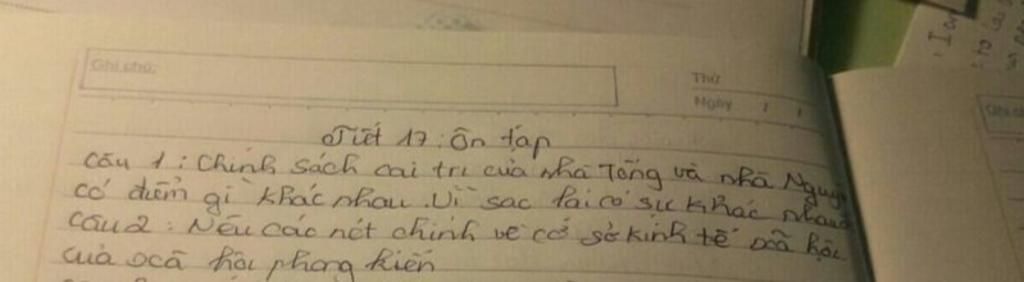 Ghi chú:
Thứ
Ngày / /
Tiết 17: Ôn tập
Câu 1: Chính sách cai trị của nhà Tống và nhà Nguyê
có điểm gì khác nhau. Vì sao lại có sự khác nhau
Câu 2: Nêu các nét chính về cơ sở kinh tế xã hội
của xã hội phong kiến